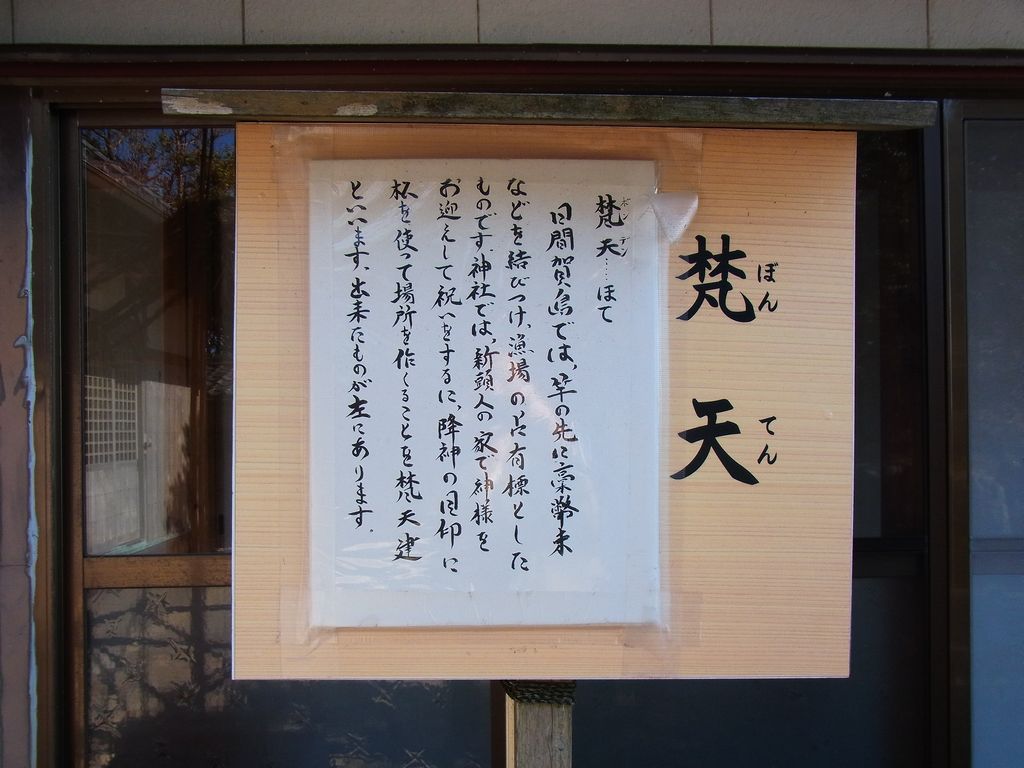 梵天
ぼんてん
梵天……ほて
ボンデン
日間賀島では、竿の先に藁、幣束
などを結びつけ、漁場の占有標とした
ものです。神社では、新頭人の家で神様を
お迎えして祝いをするに、降神の目印に
杯を使って場所を作くることを梵天建
といいます。出来たものが左にあります。